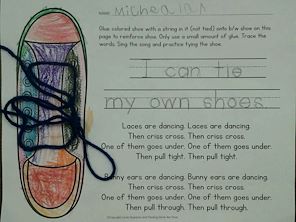 Name:
Glue colored shoe with a string in it (not tied) onto b/w shoe on
this page to reinforce shoe. Only use a small amount of glue. Trace the
words. Sing the song and practice tying the shoe.
I can tie
my own shoes.
Laces are dancing. Laces are dancing.
Then criss cross. Then criss cross.
One of them goes under. One of them goes under.
Then pull tight. Then pull tight.
Bunny ears are dancing. Bunny ears are dancing.
Then criss cross. Then criss cross.
One of them goes under. One of them goes under.
Then pull through. Then pull through.